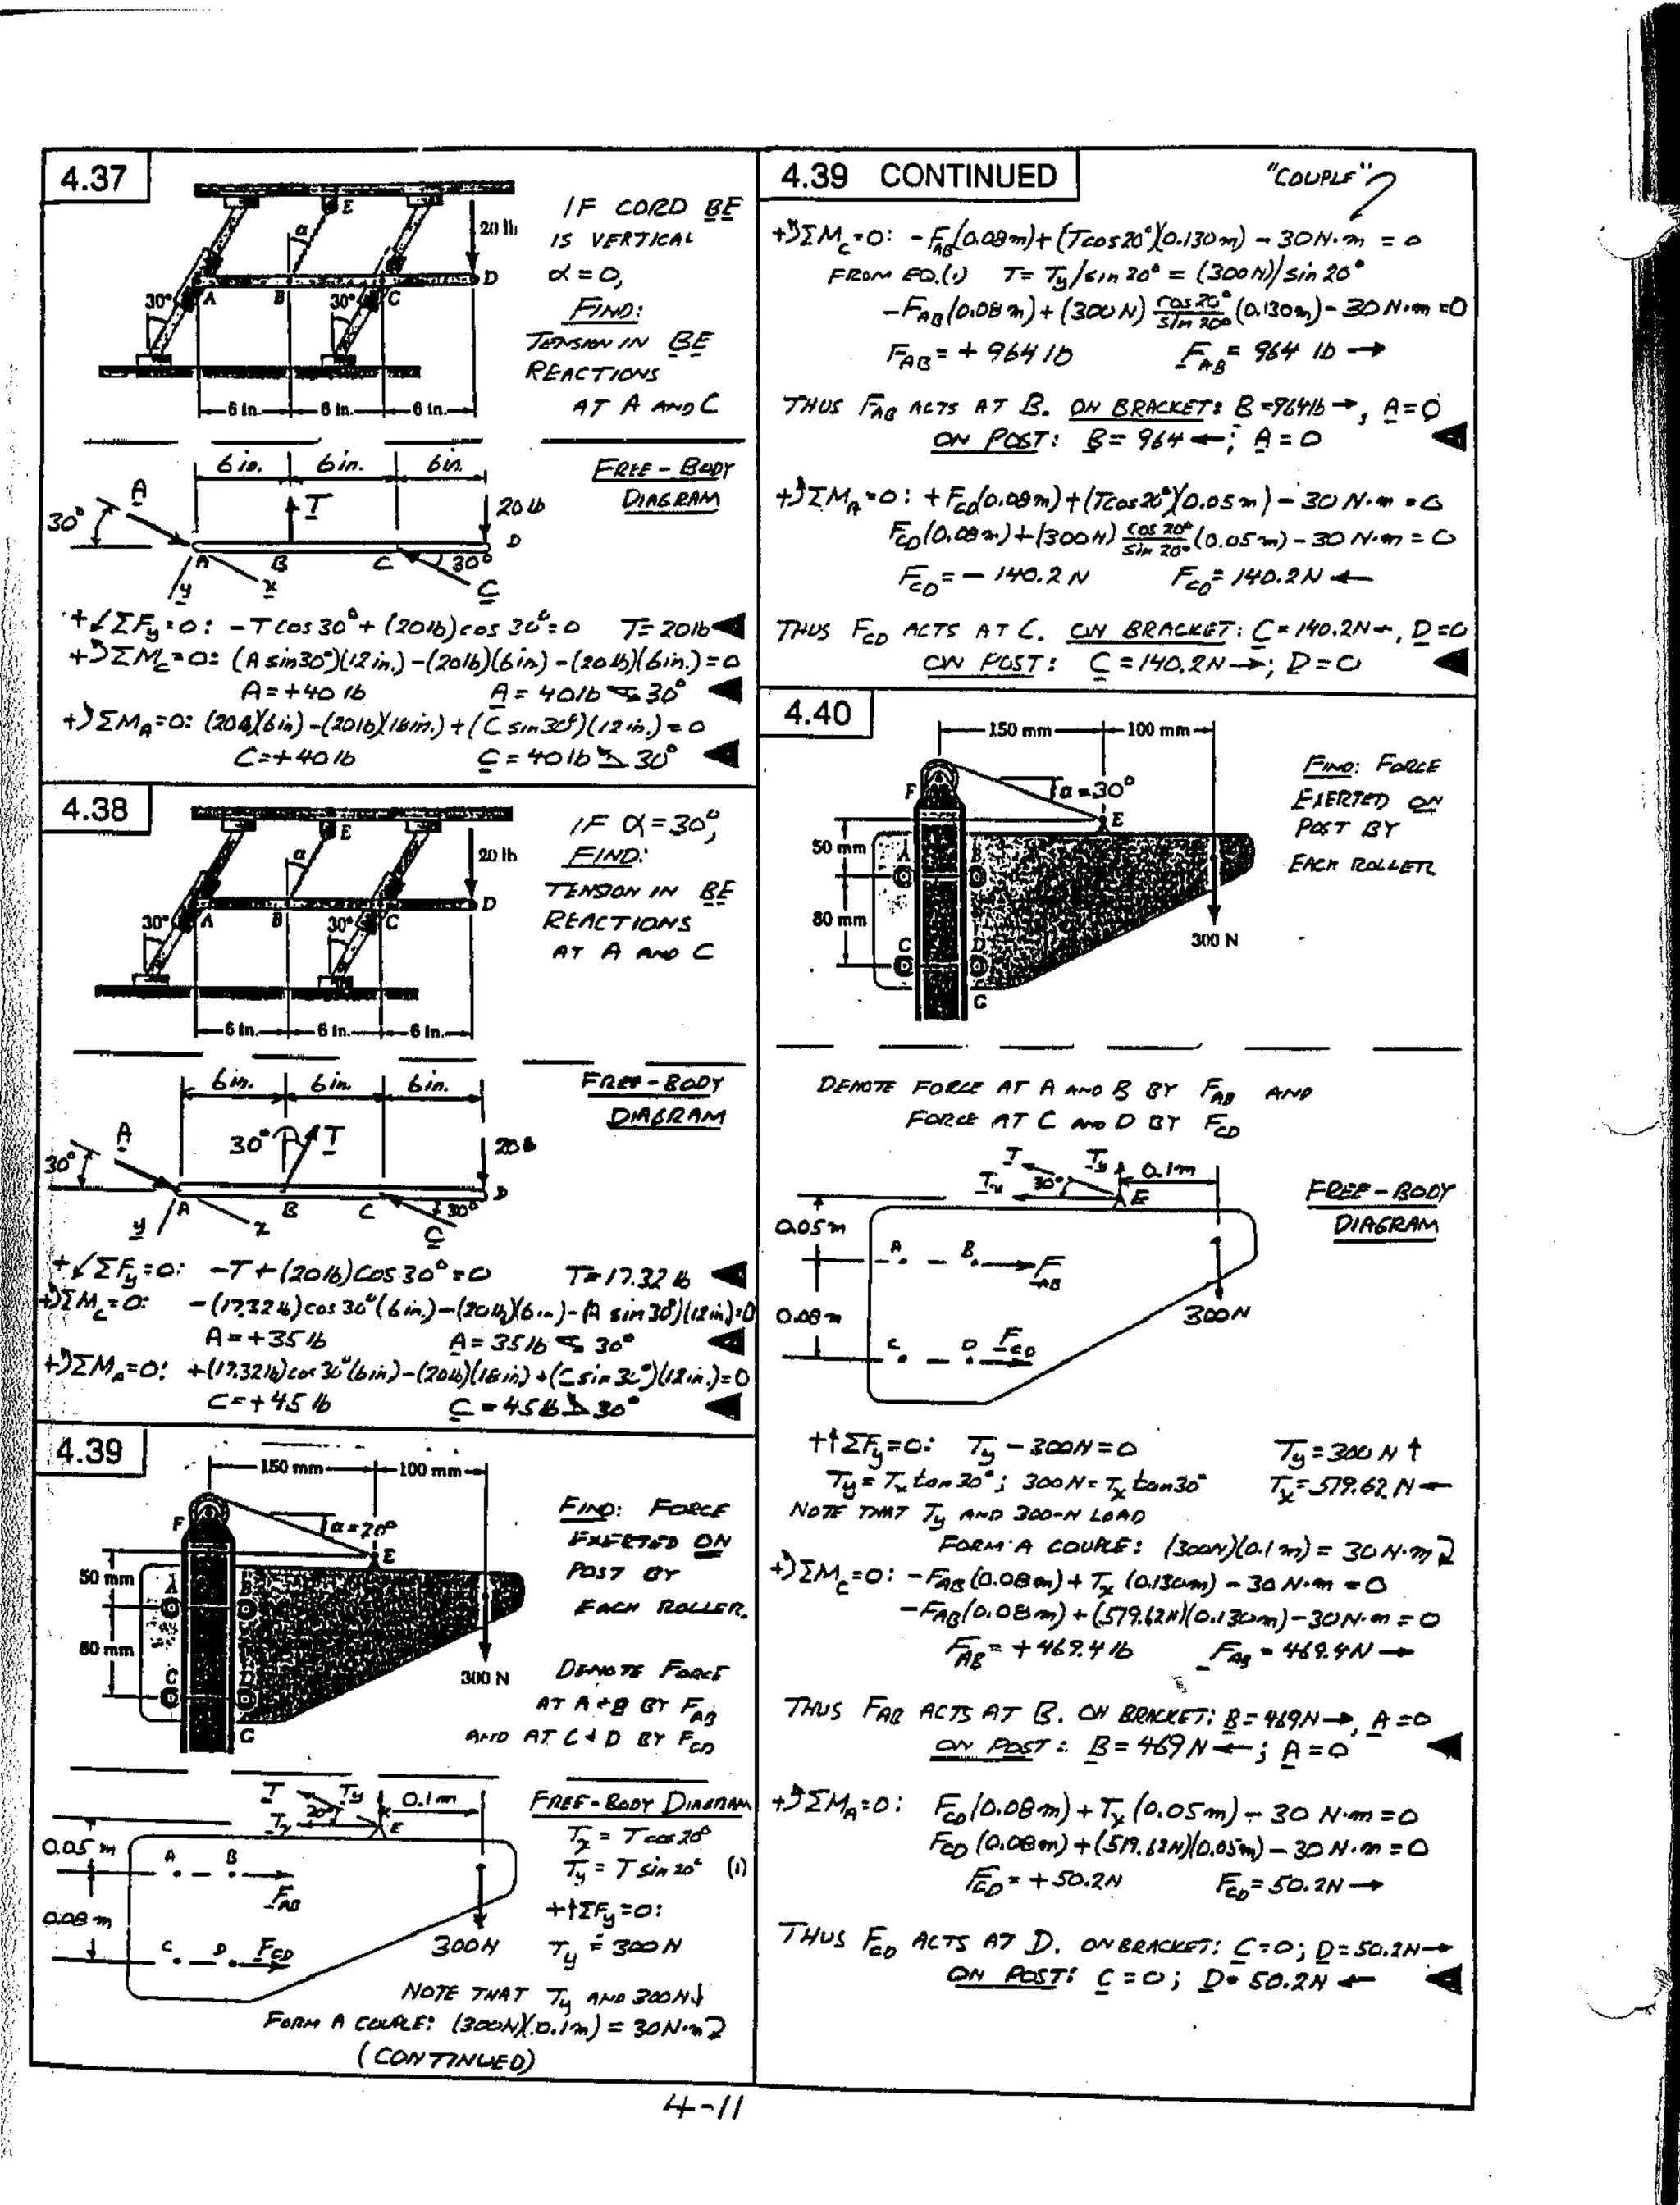 4.37
E
α
20 lb
D
A
B
C
30°
30°
6 in.
6 in.
6 in.
IF CORD BE
IS VERTICAL
α = 0,
FIND:
TENSION IN BE
REACTIONS
AT A AND C
6 in. 6 in. 6 in.
FREE-BODY
DIAGRAM
A
30°
T
20 lb
A B C D
30°
y x C
+↙ΣFy=0: -T cos 30° + (20 lb) cos 30° = 0 T = 20 lb ◀
+↺ΣMC=0: (A sin 30°)(12 in.) - (20 lb)(6 in) - (20 lb)(6 in.) = 0
A = +40 lb A = 40 lb 30° ◀
+↺ΣMA=0: (20 lb)(6 in) - (20 lb)(18 in.) + (C sin 30°)(12 in.) = 0
C = +40 lb C = 40 lb 30° ◀
4.38
E
α
20 lb
D
A
B
C
30°
30°
6 in.
6 in.
6 in.
IF α = 30°,
FIND:
TENSION IN BE
REACTIONS
AT A AND C
6 in. 6 in. 6 in.
FREE-BODY
DIAGRAM
A
30°
30° T
20 lb
A B C D
30°
y x C
+↙ΣFy=0: -T + (20 lb) cos 30° = 0 T = 17.32 lb ◀
+↺ΣMC=0: -(17.32 lb) cos 30° (6 in.) - (20 lb)(6 in) - (A sin 30°)(12 in.) = 0
A = +35 lb A = 35 lb 30° ◀
+↺ΣMA=0: +(17.32 lb) cos 30° (6 in) - (20 lb)(18 in) + (C sin 30°)(12 in.) = 0
C = +45 lb C = 45 lb 30° ◀
4.39
150 mm
100 mm
F
α = 20°
E
50 mm
A
B
80 mm
C
D
G
300 N
FIND: FORCE
EXERTED ON
POST BY
EACH ROLLER.
DENOTE FORCE
AT A + B BY FAB
AND AT C & D BY FCD
T Ty
20°
Tx
E
0.1 m
0.05 m
A B
FAB
0.08 m
C D FCD
300 N
FREE-BODY DIAGRAM
Tx = T cos 20°
Ty = T sin 20° (1)
+↑ΣFy=0:
Ty = 300 N
NOTE THAT Ty AND 300 N↓
FORM A COUPLE: (300 N)(0.1 m) = 30 N·m ↻
(CONTINUED)
4.39 CONTINUED
"COUPLE"?
+↺ΣMC=0: -FAB(0.08 m) + (T cos 20°)(0.130 m) - 30 N·m = 0
FROM EQ.(1) T = Ty/sin 20° = (300 N)/sin 20°
-FAB(0.08 m) + (300 N) cos 20°/sin 20° (0.130 m) - 30 N·m = 0
FAB = +964 lb FAB = 964 lb →
THUS FAB ACTS AT B. ON BRACKET: B = 964 lb →, A = 0
ON POST: B = 964 ←; A = 0 ◀
+↺ΣMA=0: +FCD(0.08 m) + (T cos 20°)(0.05 m) - 30 N·m = 0
FCD(0.08 m) + (300 N) cos 20°/sin 20° (0.05 m) - 30 N·m = 0
FCD = -140.2 N FCD = 140.2 N ←
THUS FCD ACTS AT C. ON BRACKET: C = 140.2 N ←, D = 0
ON POST: C = 140.2 N →; D = 0 ◀
4.40
150 mm
100 mm
F
α = 30°
E
50 mm
A
B
80 mm
C
D
G
300 N
FIND: FORCE
EXERTED ON
POST BY
EACH ROLLER
DENOTE FORCE AT A AND B BY FAB AND
FORCE AT C AND D BY FCD
T Ty
0.1 m
Tx 30° E
0.05 m
A B FAB
0.08 m
C D FCD
300 N
FREE-BODY
DIAGRAM
+↑ΣFy=0: Ty - 300 N = 0 Ty = 300 N ↑
Ty = Tx tan 30°; 300 N = Tx tan 30° Tx = 519.62 N ←
NOTE THAT Ty AND 300-N LOAD
FORM A COUPLE: (300 N)(0.1 m) = 30 N·m ↻
+↺ΣMC=0: -FAB(0.08 m) + Tx (0.130 m) - 30 N·m = 0
-FAB(0.08 m) + (519.62 N)(0.130 m) - 30 N·m = 0
FAB = +469.4 lb FAB = 469.4 N →
THUS FAB ACTS AT B. ON BRACKET: B = 469 N →, A = 0
ON POST: B = 469 N ←; A = 0 ◀
+↺ΣMA=0: FCD(0.08 m) + Tx (0.05 m) - 30 N·m = 0
FCD (0.08 m) + (519.62 N)(0.05 m) - 30 N·m = 0
FCD = +50.2 N FCD = 50.2 N →
THUS FCD ACTS AT D. ON BRACKET: C = 0; D = 50.2 N →
ON POST: C = 0; D = 50.2 N ← ◀
4-11